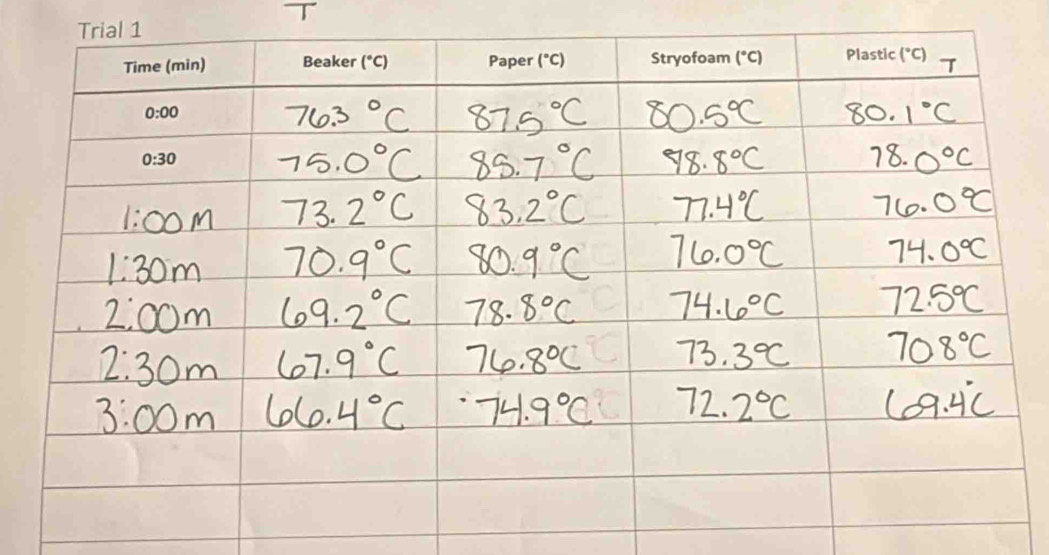 T
Trial 1
Time (min) Beaker (°C) Paper (°C) Stryofoam (°C) Plastic (°C) T
0:00 76.3°C 87.5°C 80.5°C 80.1°C
0:30 75.0°C 85.7°C 98.8°C 78.0°C
1:00m 73.2°C 83.2°C 77.4°C 76.0°C
1:30m 70.9°C 80.9°C 76.0°C 74.0°C
2:00m 69.2°C 78.8°C 74.6°C 72.5°C
2:30m 67.9°C 76.8°C 73.3°C 70.8°C
3:00m 66.4°C 74.9°C 72.2°C 69.4°C